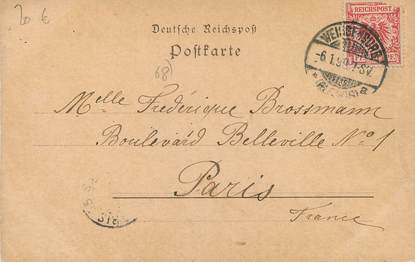 20 €
Deutsche Reichspost
Postkarte
REICHSPOST
WEISSENBURG
-6.1.99.7-8V.
a
(68)
Melle Frédérique Brossmann
Boulevard Belleville No 1
Paris
France